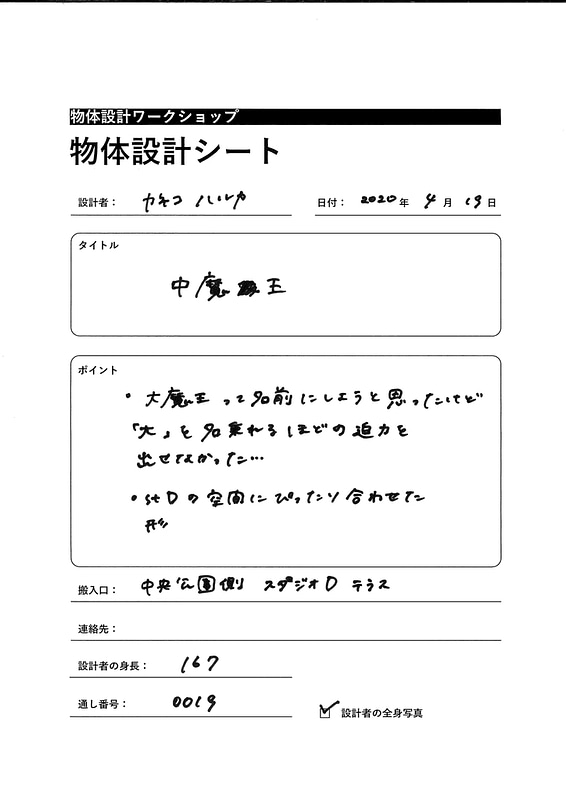 物体設計ワークショップ
物体設計シート
設計者： カネコ ハルカ
日付： 2020 年 4 月 19 日
タイトル
中魔王
ポイント
・大魔王って名前にしようと思ったけど
「大」を名乗れるほどの迫力を
出せなかった…
・stDの空間にぴったり合わせた
形
搬入口： 中央公園側 スタジオD テラス
連絡先：
設計者の身長： 167
通し番号： 0019
設計者の全身写真